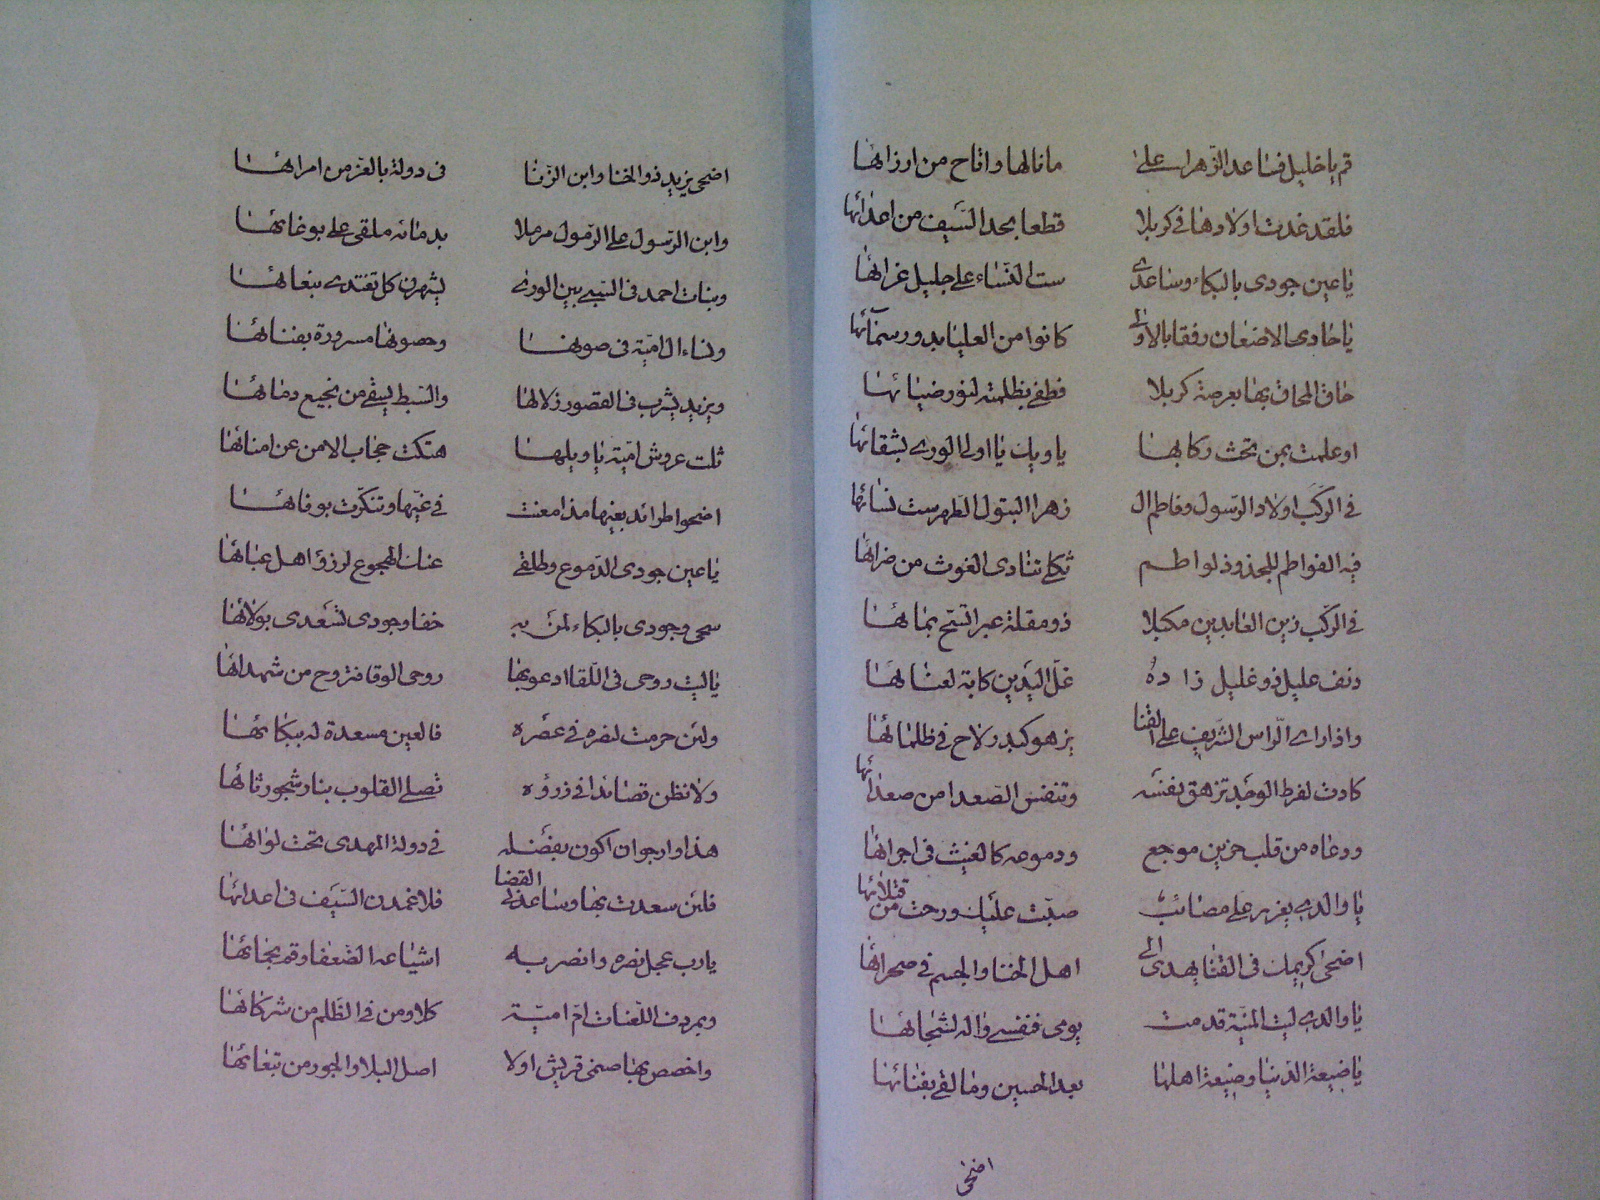 قم يا خليل فساعد الزهراء على ما نالها واتاح من ارزائها
فلقد غدت اولادها في كربلا قطعا بحد السيف من اعدائها
يا عين جودي بالبكاء وساعدي ست النساء على جليل عزائها
يا حادي الاضعان رفقا بالاولى كانوا من العليا بدور سمآئها
حاق المحاق بها بعرصة كربلا فطفى بظلمته لنور ضيائها
او علمت بمن تحث ركابها يا ويك يا اولى الورى بشقائها
في الركب اولاد الرسول وفاطم ال زهرا البتول الطهر ست نسائها
فيه الفواطم للخدود لواطم ثكلى تنادى الغوث من ضرائها
في الركب زين العابدين مكبلا ذو مقلة عبرا تسح بمائها
دنف عليل ذو غليل زاده غل اليدين كابة لعنائها
واذا راى الراس الشريف على القنا يزهو كبدر لاح في ظلمائها
كادت لفرط الوجد تزهق نفسه وتنفس الصعدا من صعدائها
ودعاه من قلب حزين موجع ودموعه كالغيث في اجرائها
يا والدي يعزر على مصائب صبت عليك ورحت من قتلائها
اضحى كريمك في القنا يهدى الى اهل الخنا والجسم في صحرائها
يا والدي ليت المنية قدمت يومي فنفسي واله لشجائها
يا ضيعة الدنيا وضيعة اهلها بعد الحسين وما لقي بفنائها
اضحى
اضحى يزيد ذو الخنا وابن الزنا في دولة بالعز من امرائها
وابن الرسول على الرمول مرملا بدمائه ملقى على بوغائها
وبنات احمد في السبي بين الورى يشهرن كل تفتدى بنعائها
ونساء ال امية في صونها وحصونها مسرورة بفنائها
ويزيد يشرب في القصور زلالها والسبط يسقى من نجيع دمائها
ثلت عروش امية يا ويلها هتكت حجاب الامن عن امنائها
اضحوا طرائد بغيها مذ امعنت في غيها وتنكرت بوفائها
يا عين جودي الدموع وطلقى عنك الهجوع لرزؤ اهل عبائها
سحى وجودى بالبكاء لمن به خفا وجودى تسعدى بولائها
يا ليت روحى في اللقا ادعو بها روحى الوقا فتروح من شهدائها
ولئن حرمت لنصره في عصره فالعين مسعدة له ببكائها
ولانظمن قصائدا في زرؤه تصلى القلوب بنار شجو رثائها
هذا وارجو ان اكون بفضله في دولة المهدى تحت لوائها
فلئن سعدت بها وساعدنى القضا فلاغمدن السيف في اعدائها
يا رب عجل نصره وانصر به اشياعه الضعفا وقم بنجائها
وبمردف اللعنات ام امية كلا ومن في الظلم من شركائها
واخصص بها صنمى قريش اولا اصل البلا والجور من تبعائها